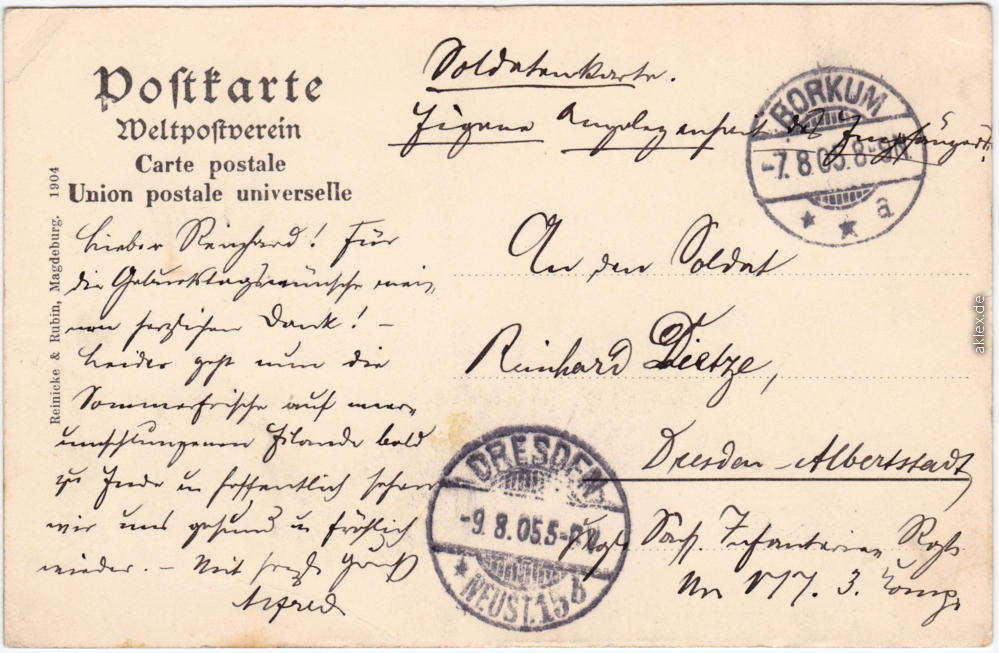 Postkarte
Weltpostverein
Carte postale
Union postale universelle
Reinicke & Rubin, Magdeburg. 1904
Soldatenkarte.
Eigene Angelegenheit des Empfängers.
BORKUM
-7.8.05.8-9N.
* * a
Lieber Reinhard! Für
die Geburtstagswünsche mei-
nen herzlichen Dank! –
Leider geht nun die
Sommerfrische auf meer-
umschlungenem Eilande bald
zu Ende u hoffentlich sehen
wir uns gesund u fröhlich
wieder. – Mit herzl. Gruß
Alfred
An den Soldat
Reinhard Dietze,
Dresden-Albertstadt
Kgl. Sächs. Infanterie Regt
No 177. 3. Comp.
DRESDEN
-9.8.05.5-6V.
* NEUST. 15 b
aklex.de